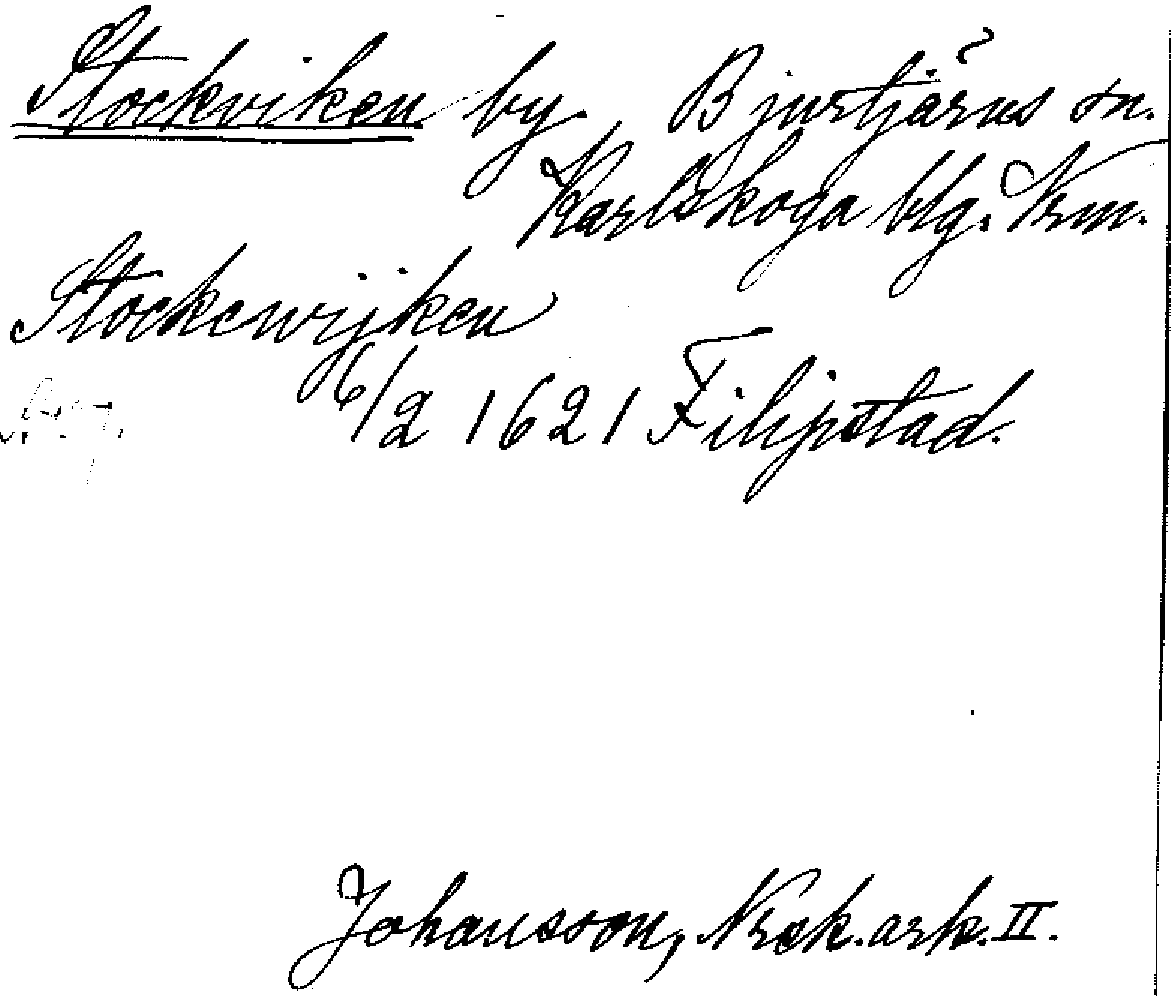 Stockviken by. Bjurtjärns sn.
Karlskoga blg. Vrm.
Stockewijken
6/2 1621 Filipstad.
Johansson, Nrck. ark. II.